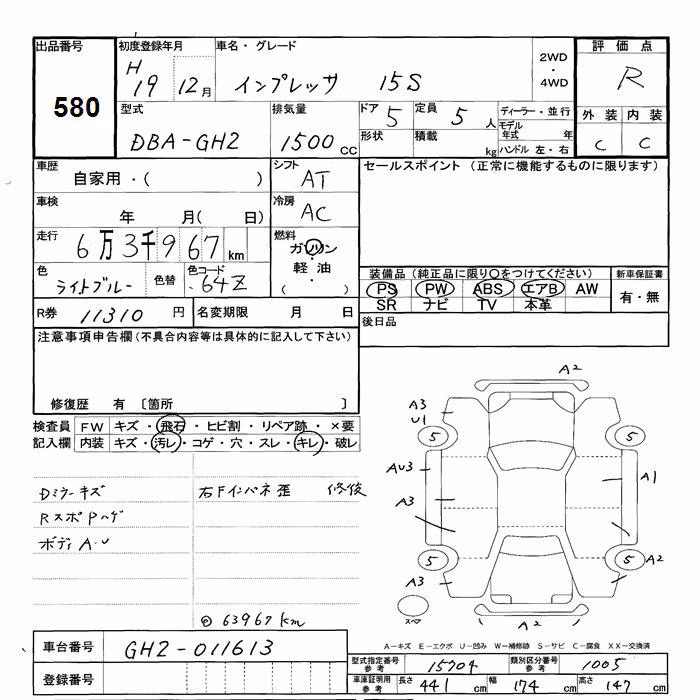 出品番号 初度登録年月 車名・グレード 2WD・4WD 評価点
580 H19 12月 インプレッサ 15S R
型式 排気量 ドア 定員 ディーラー・並行 外装 内装
DBA-GH2 1500cc 5 5人 モデル年式 年 C C
形状 積載 kg ハンドル 左・右
車歴 シフト セールスポイント (正常に機能するものに限ります)
自家用・( ) AT
車検 冷房
年 月( 日) AC
走行 燃料
6万3千967km ガソリン・軽油
( )
色 色替 色コード 装備品 (純正品に限り○をつけてください) 新車保証書
ライトブルー 64Z PS PW ABS エアB AW 有・無
SR ナビ TV 本革
R券 11310円 名変期限 月 日 後日品
注意事項申告欄(不具合内容等は具体的に記入して下さい)
修復歴 有 〔箇所 〕
検査員 FW キズ・飛石・ヒビ割・リペア跡・×要
記入欄 内装 キズ・汚レ・コゲ・穴・スレ・キレ・破レ
Dミラーキズ 右Fインパネ歪 修後
RスポPハゲ
ボディA・U
◎63967km
A2
A3
U1
5 5
AU3 A1
A3
5 5 A2
A3
スペア A2
A-キズ E-エクボ U-凹み W-補修跡 S-サビ C-腐食 XX-交換済
車台番号 GH2-011613
登録番号
型式指定番号 参考 15704 類別区分番号 参考 1005
車庫証明用 参考 長さ 441cm 幅 174cm 高さ 147cm